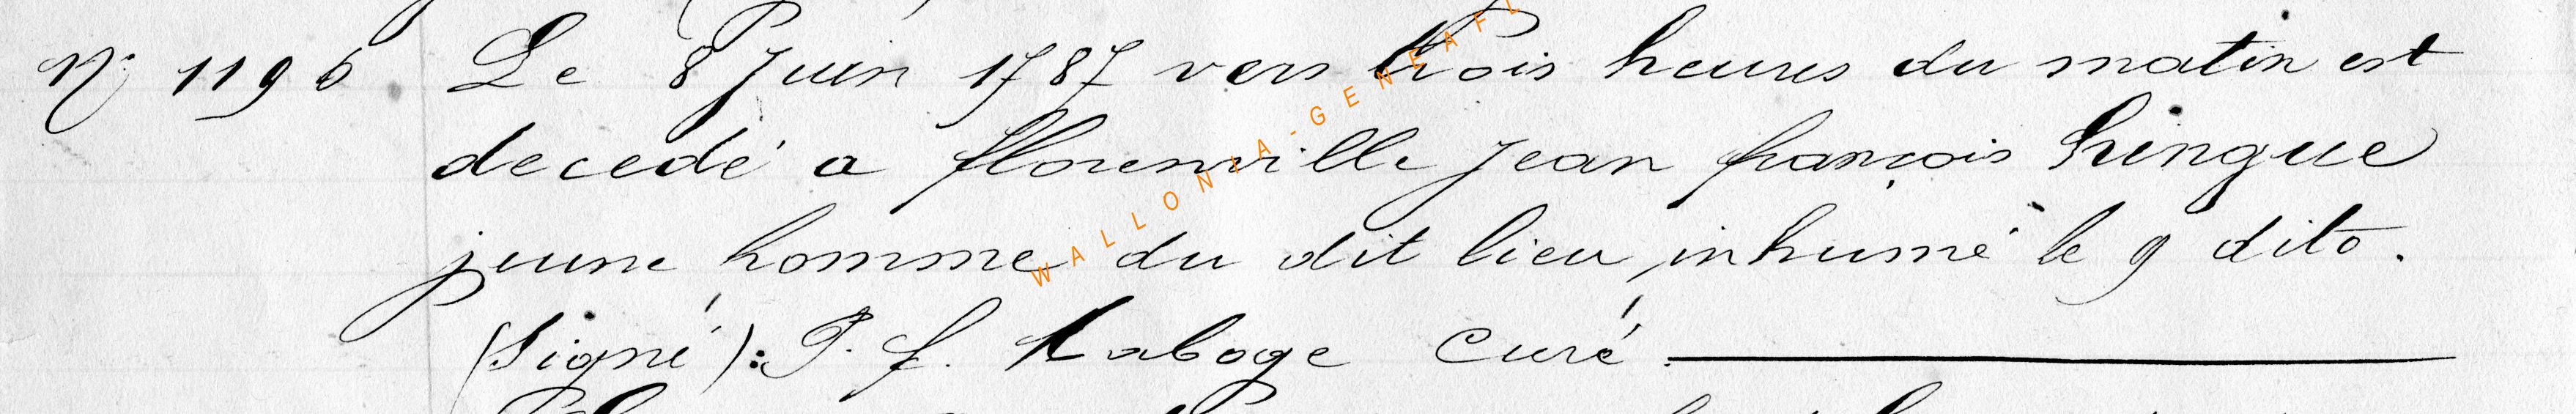 N° 1196 Le 8 Juin 1787 vers trois heures du matin est
decedé a florenville Jean françois hingue
jeune homme du dit lieu, inhumé le 9 dito.
(Signé): P. f. Laboge Curé.
WALLONIA-GENEAFL